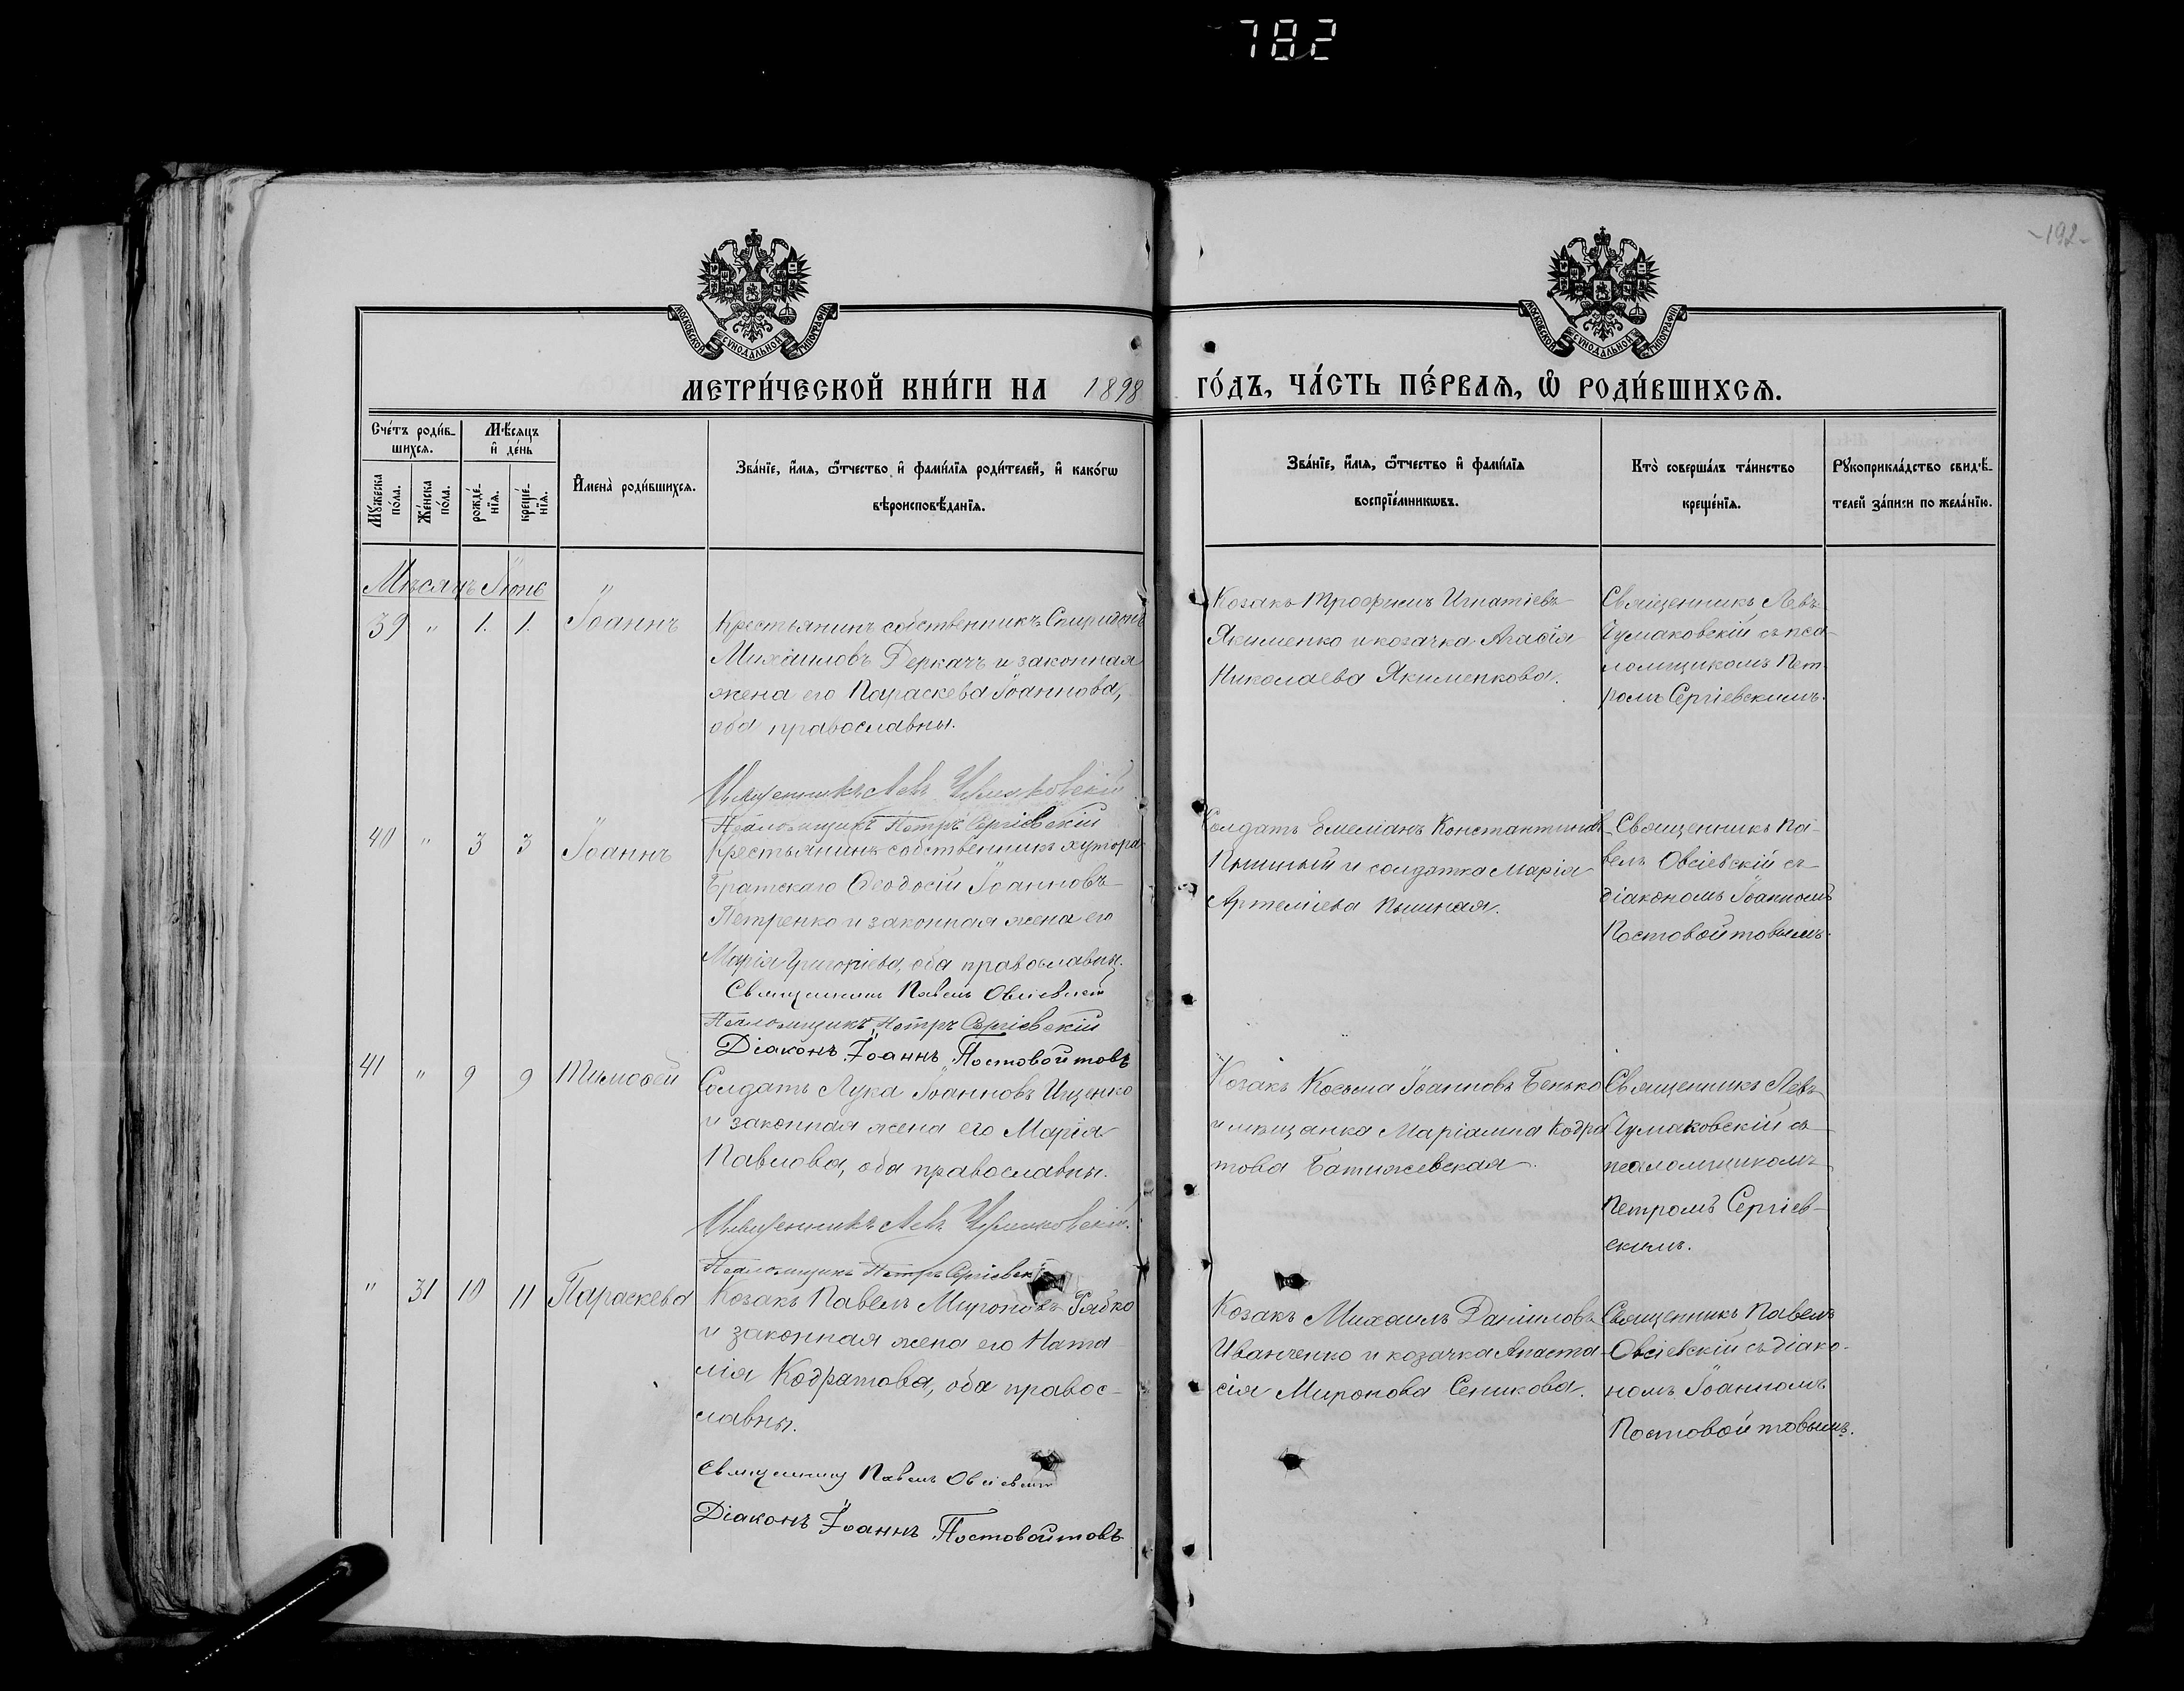 782
-192-
МОСКОВСКОЙ СѴНОДАЛЬНОЙ ТИПОГРАФІИ
МОСКОВСКОЙ СѴНОДАЛЬНОЙ ТИПОГРАФІИ
МЕТРИ́ЧЕСКОЙ КНИ́ГИ НА 1898
ГО́ДЪ, ЧА́СТЬ ПЕ́РВАѦ, Ѽ РОДИ́ВШИХСѦ.
Сче́тъ роди́в-
шихсѧ.
Мѣ́сѧцъ
и҆ де́нь
Мꙋ́жеска
по́ла.
Же́нска
по́ла.
рожде́-
нїѧ.
креще́-
нїѧ.
И҆мена̀ роди́вшихсѧ.
Зва́нїе, и҆́мѧ, ѻ҆́тчество и҆ фами́лїѧ роди́телей, и҆ како́гѡ
вѣроисповѣ́данїѧ.
Зва́нїе, и҆́мѧ, ѻ҆́тчество и҆ фами́лїѧ
воспрїе́мникѡвъ.
Кто̀ соверша́лъ та́инство
креще́нїѧ.
Рꙋкоприкла́дство свидѣ́-
телей за́писи по жела́нїю.
Мѣсяцъ Іюнь
39 " 1. 1. Іоаннъ
Крестьянинъ собственникъ Спиридонъ
Михаиловъ Деркачъ и законная
жена его Параскева Іоаннова,
оба православны.
Священникъ Левъ Чумаковскій
Псаломщикъ Петръ Сергіевскій
Козакъ Трофимъ Игнатіевъ
Якименко и козачка Агафія
Николаева Якименкова.
Священникъ Левъ
Чумаковскій съ пса-
ломщикомъ Пет-
ромъ Сергіевскимъ.
40 " 3 3 Іоаннъ
Крестьянинъ собственникъ хутора
Братскаго Ѳеодосій Іоанновъ
Петренко и законная жена его
Марія Григоріева, оба православны.
Священникъ Павелъ Овсіевскій
Псаломщикъ Петръ Сергіевскій
Діаконъ Іоаннъ Постовойтовъ
Солдатъ Емеліанъ Константиновъ
Пышный и солдатка Марія
Артеміева Пышная.
Священникъ Па-
велъ Овсіевскій съ
діакономъ Іоанномъ
Постовойтовымъ.
41 " 9 9 Тимоѳей
Солдатъ Лука Іоанновъ Ищенко
и законная жена его Марія
Павлова, оба православны.
Священникъ Левъ Чумаковскій.
Псаломщикъ Петръ Сергіевскій
Козакъ Косьма Іоанновъ Бенько
и мѣщанка Маріамна Кодра
това Батижевская.
Священникъ Левъ
Чумаковскій съ
псаломщикомъ
Петромъ Сергіев-
скимъ.
" 31 10 11 Параскева
Козакъ Павелъ Мироновъ Рябко
и законная жена его Ната-
лія Кодратова, оба правос-
лавны.
Священникъ Павелъ Овсіевскій
Діаконъ Іоаннъ Постовойтовъ
Козакъ Михаилъ Даніиловъ
Иванченко и козачка Анаста-
сія Миронова Сеникова.
Священникъ Павелъ
Овсіевскій съ діако-
номъ Іоанномъ
Постовойтовымъ.